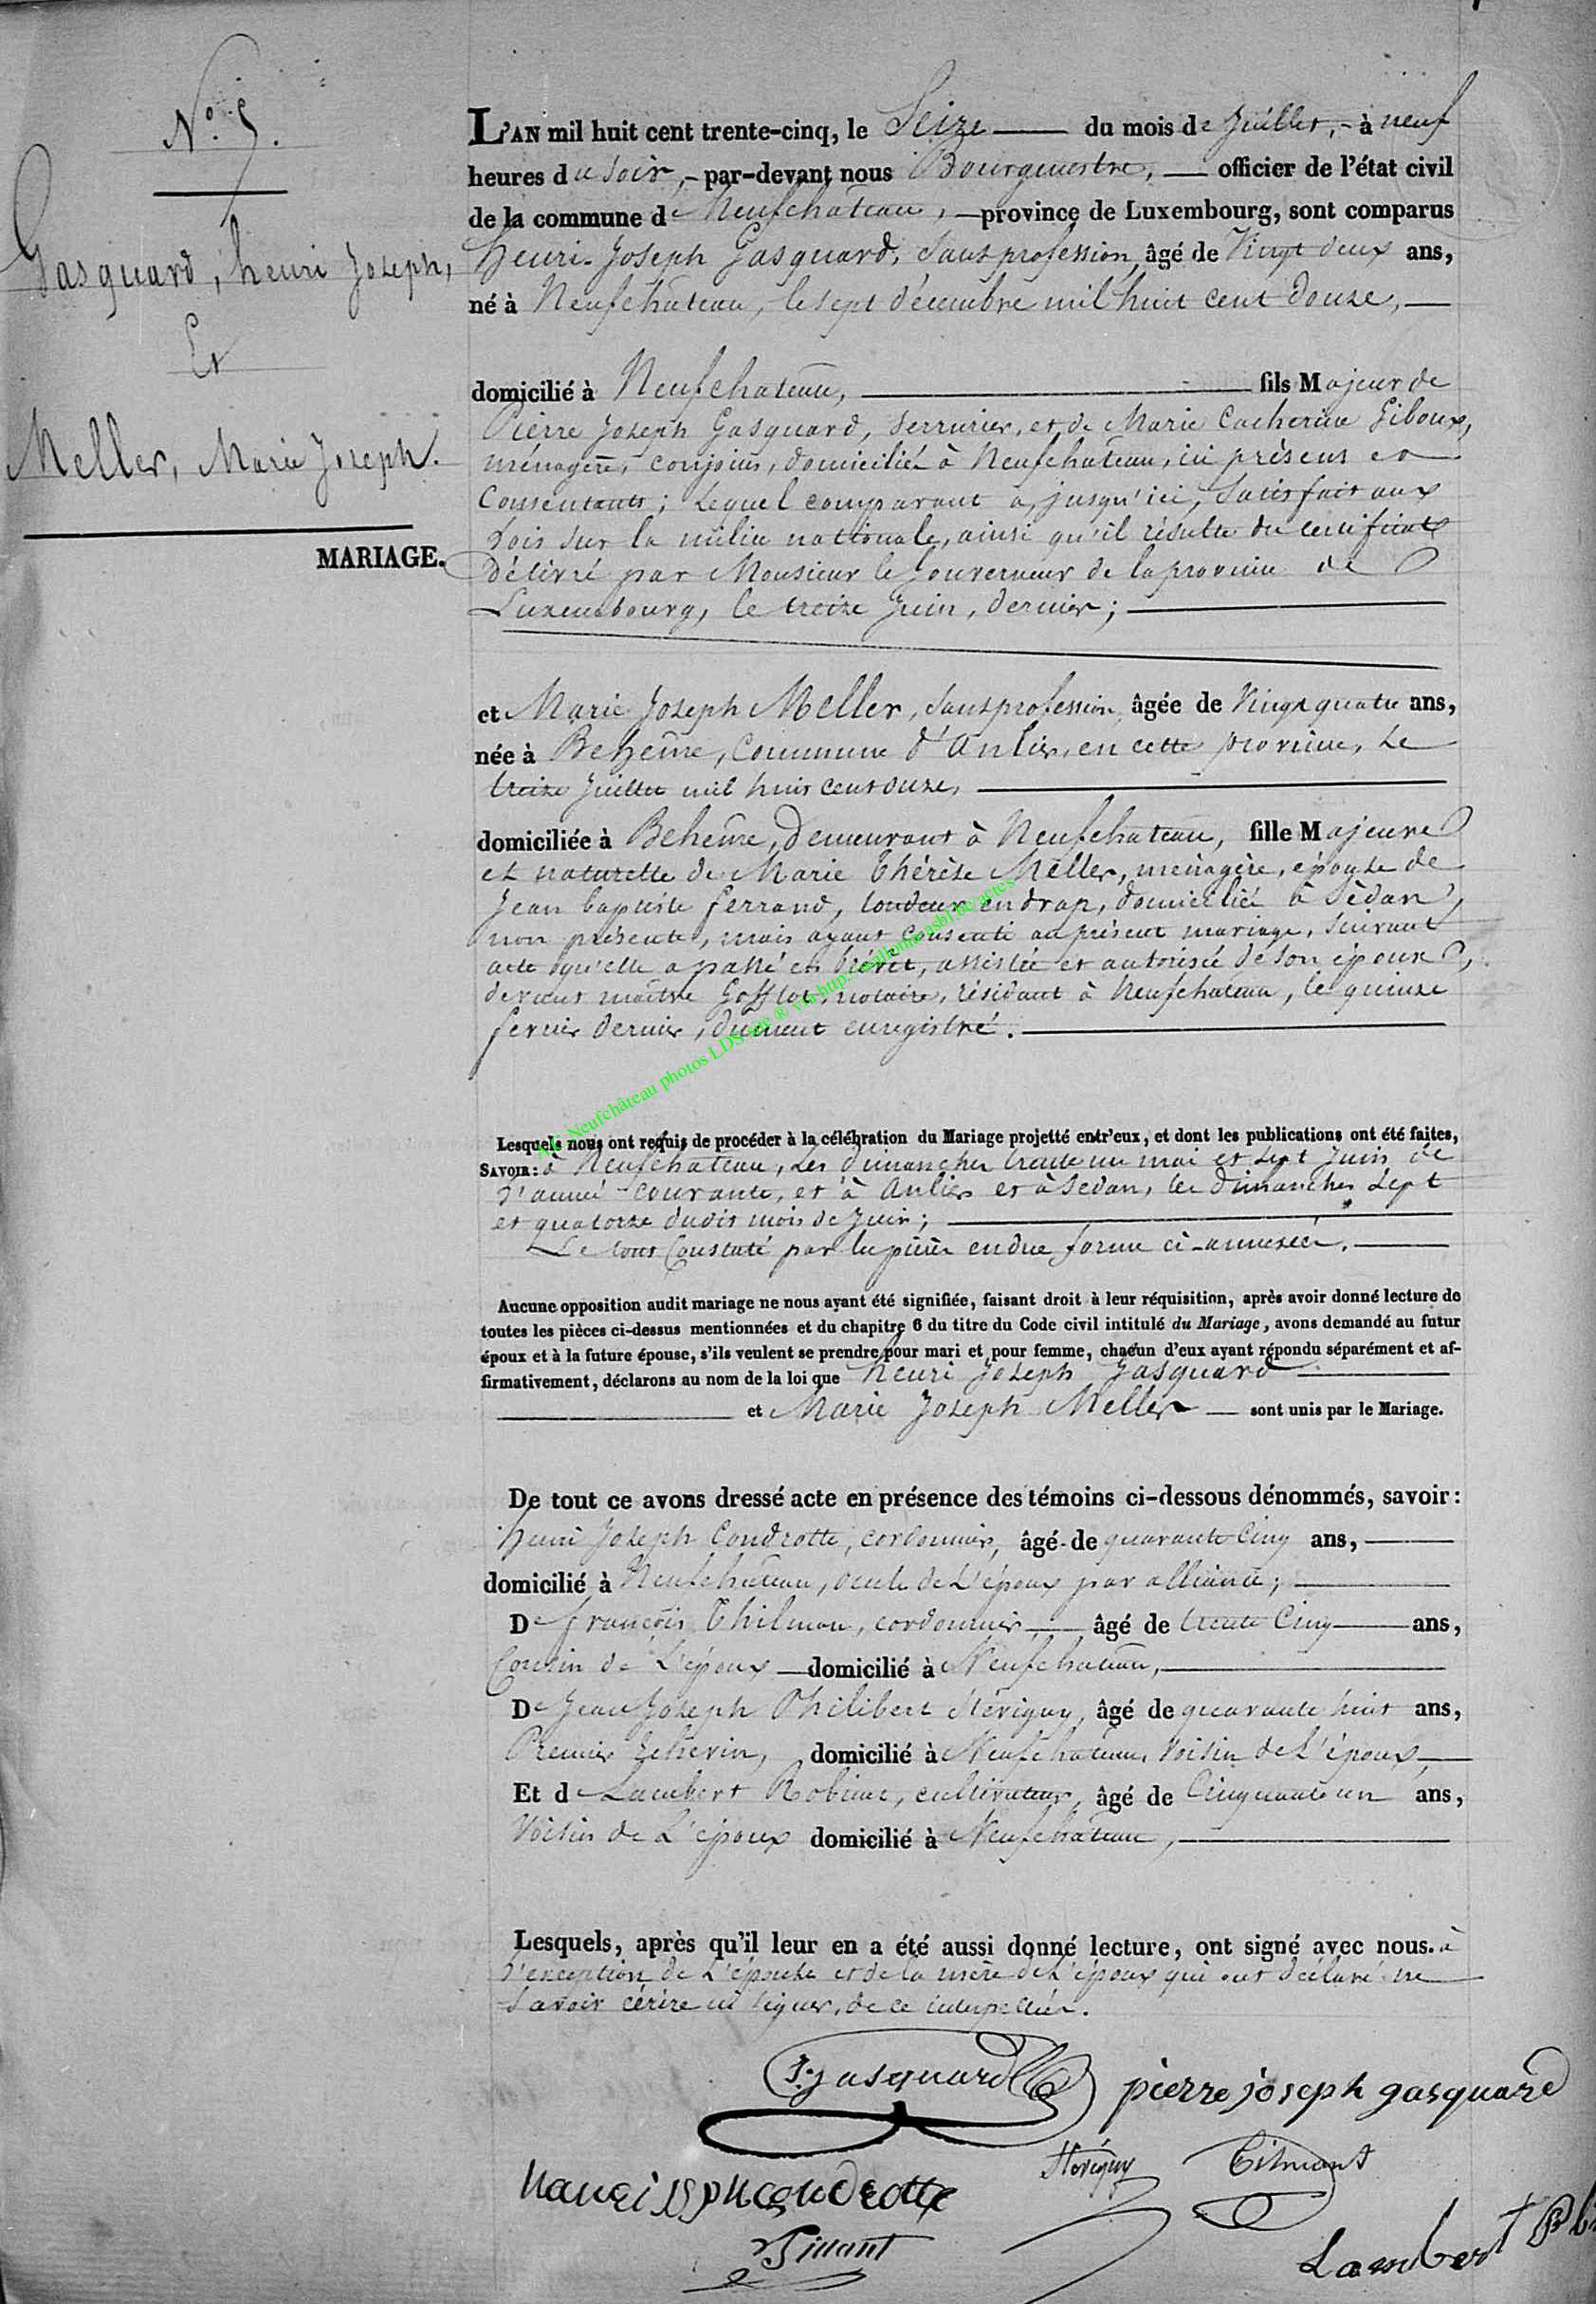 N.º 5.
Gasquard, henri Joseph,
Et
Meller, Marie Joseph.
MARIAGE.
L'AN mil huit cent trente-cinq, le Seize du mois de Juillet, à neuf
heures du soir, par-devant nous Bourgmestre, officier de l'état civil
de la commune de Neufchateau, province de Luxembourg, sont comparus
henri Joseph Gasquard, sans profession, âgé de Vingt deux ans,
né à Neufchateau, le sept décembre mil huit cent douze,
domicilié à Neufchateau, fils Majeur de
Pierre Joseph Gasquard, serrurier, et de Marie Catherine Giboux,
ménagère, conjoins, domiciliés à Neufchateau, ici présens et
Consentants; Lequel comparant a, jusqu'ici, Satisfait aux
Lois sur la milice nationale, ainsi qu'il résulte du certificat
Délivré par Monsieur le Gouverneur de la province de
Luxembourg, le treize Juin, dernier;
et Marie Joseph Meller, sans profession, âgée de Vingt quatre ans,
née à Behême, Commune d'Anlier, en cette province, Le
treize Juillet mil huit cent onze,
domiciliée à Behême, Demeurant à Neufchateau, fille Majeure
et naturelle de Marie Thérèse Meller, ménagère, épouse de
Jean baptiste ferrand, tondeur en drap, domicilié à Sédan,
non présente, mais ayant consenti au présent mariage, suivant
acte qu'elle a passé en brévet, assistée et autorisée de son époux,
devant maître Gofflot, notaire, résidant à Neufchateau, le quinze
fevrier dernier, dument enregistré.
Neufchâteau photos LDS
Lesquels nous ont requis de procéder à la célébration du Mariage projetté entr'eux, et dont les publications ont été faites,
SAVOIR: à Neufchateau, Les Dimanches trente un mai et sept Juin de
L'année courante, et à Anlier et à Sedan, les Dimanches Sept
et quatorze dudit mois de Juin;
Le tout Constaté par les pièces en due forme ci-annexées.
Aucune opposition audit mariage ne nous ayant été signifiée, faisant droit à leur réquisition, après avoir donné lecture de
toutes les pièces ci-dessus mentionnées et du chapitre 6 du titre du Code civil intitulé du Mariage, avons demandé au futur
époux et à la future épouse, s'ils veulent se prendre pour mari et pour femme, chacun d'eux ayant répondu séparément et af-
firmativement, déclarons au nom de la loi que henri Joseph Gasquard
et Marie Joseph Meller sont unis par le Mariage.
De tout ce avons dressé acte en présence des témoins ci-dessous dénommés, savoir:
henri Joseph Condrotte, cordonnier, âgé de quarante Cinq ans,
domicilié à Neufchateau, oncle de L'époux par alliance;
De françois Thilman, cordonnier, âgé de trente Cinq ans,
Cousin de L'époux domicilié à Neufchateau,
De Jean Joseph Philibert Stévigny, âgé de quarante huit ans,
Premier Echevin, domicilié à Neufchateau, Voisin de L'époux,
Et de Lambert Robinet, cultivateur, âgé de Cinquante un ans,
Voisin de L'époux domicilié à Neufchateau,
Lesquels, après qu'il leur en a été aussi donné lecture, ont signé avec nous. à
L'exception de L'épouse et de la mère de L'époux qui ont déclaré ne
Savoir écrire ni signer, de ce interpellées.
Gasquard pierre joseph gasquard
Stévigny Tilmant
Condrotte
Lambert